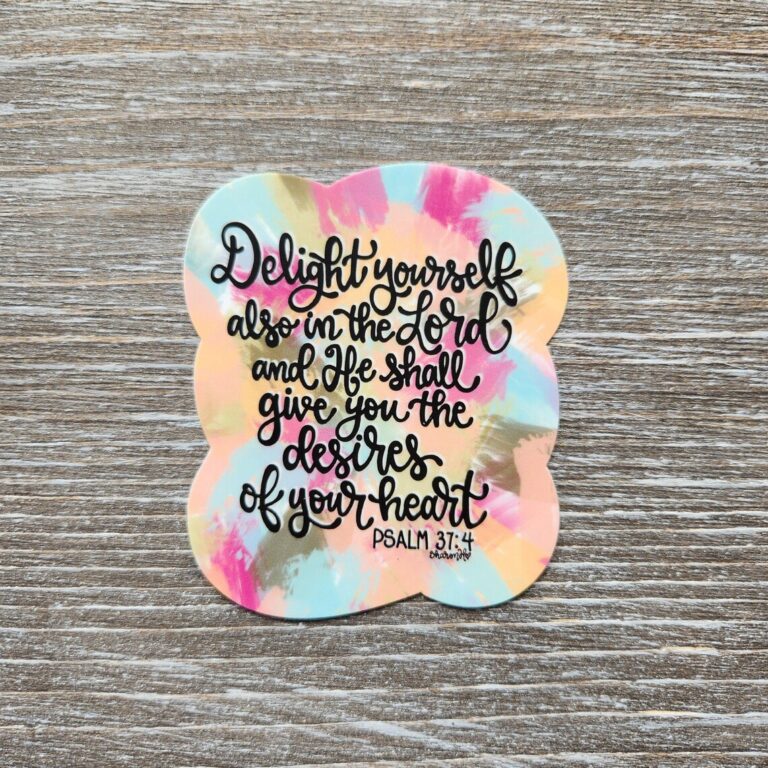 Delight yourself
also in the Lord
and He shall
give you the
desires
of your heart
PSALM 37:4